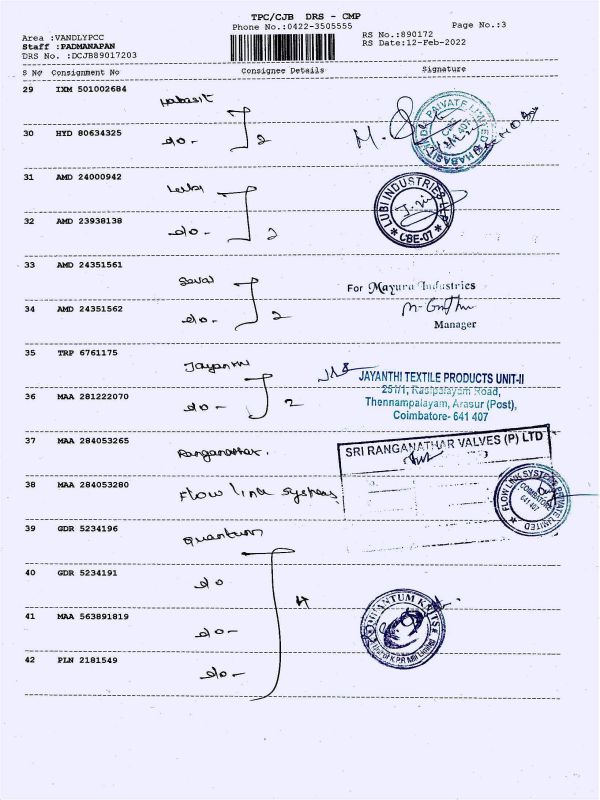 TPC/CJB DRS - CMP
Phone No.:0422-3505555
Page No.:3
Area :VANDLYPCC
RS No.:890172
Staff :PADMANAPAN
RS Date:12-Feb-2022
DRS No. :DCJB89017203
S No Consignment No Consignee Details Signature
29 IXM 501002684 Habasit
30 HYD 80634325 do - 2
31 AMD 24000942 Lubi
LUBI INDUSTRIES LLP
* CBE-07 *
32 AMD 23938138 do - 2
33 AMD 24351561
For Mayura Industries
34 AMD 24351562 do - 2
Manager
35 TRP 6761175 Jayanthi
JAYANTHI TEXTILE PRODUCTS UNIT-II
251/1, Rasipalayam Road,
36 MAA 281222070 do - 2
Thennampalayam, Arasur (Post),
Coimbatore- 641 407
37 MAA 284053265 Ranganathar.
SRI RANGANATHAR VALVES (P) LTD
38 MAA 284053280 Flow link systems
FLOW LINK SYSTEMS PRIVATE LIMITED
COIMBATORE
641 407
39 GDR 5234196 Quantum
40 GDR 5234191 do
4
41 MAA 563891819 do -
QUANTUM KNITS
42 PLN 2181549 do -